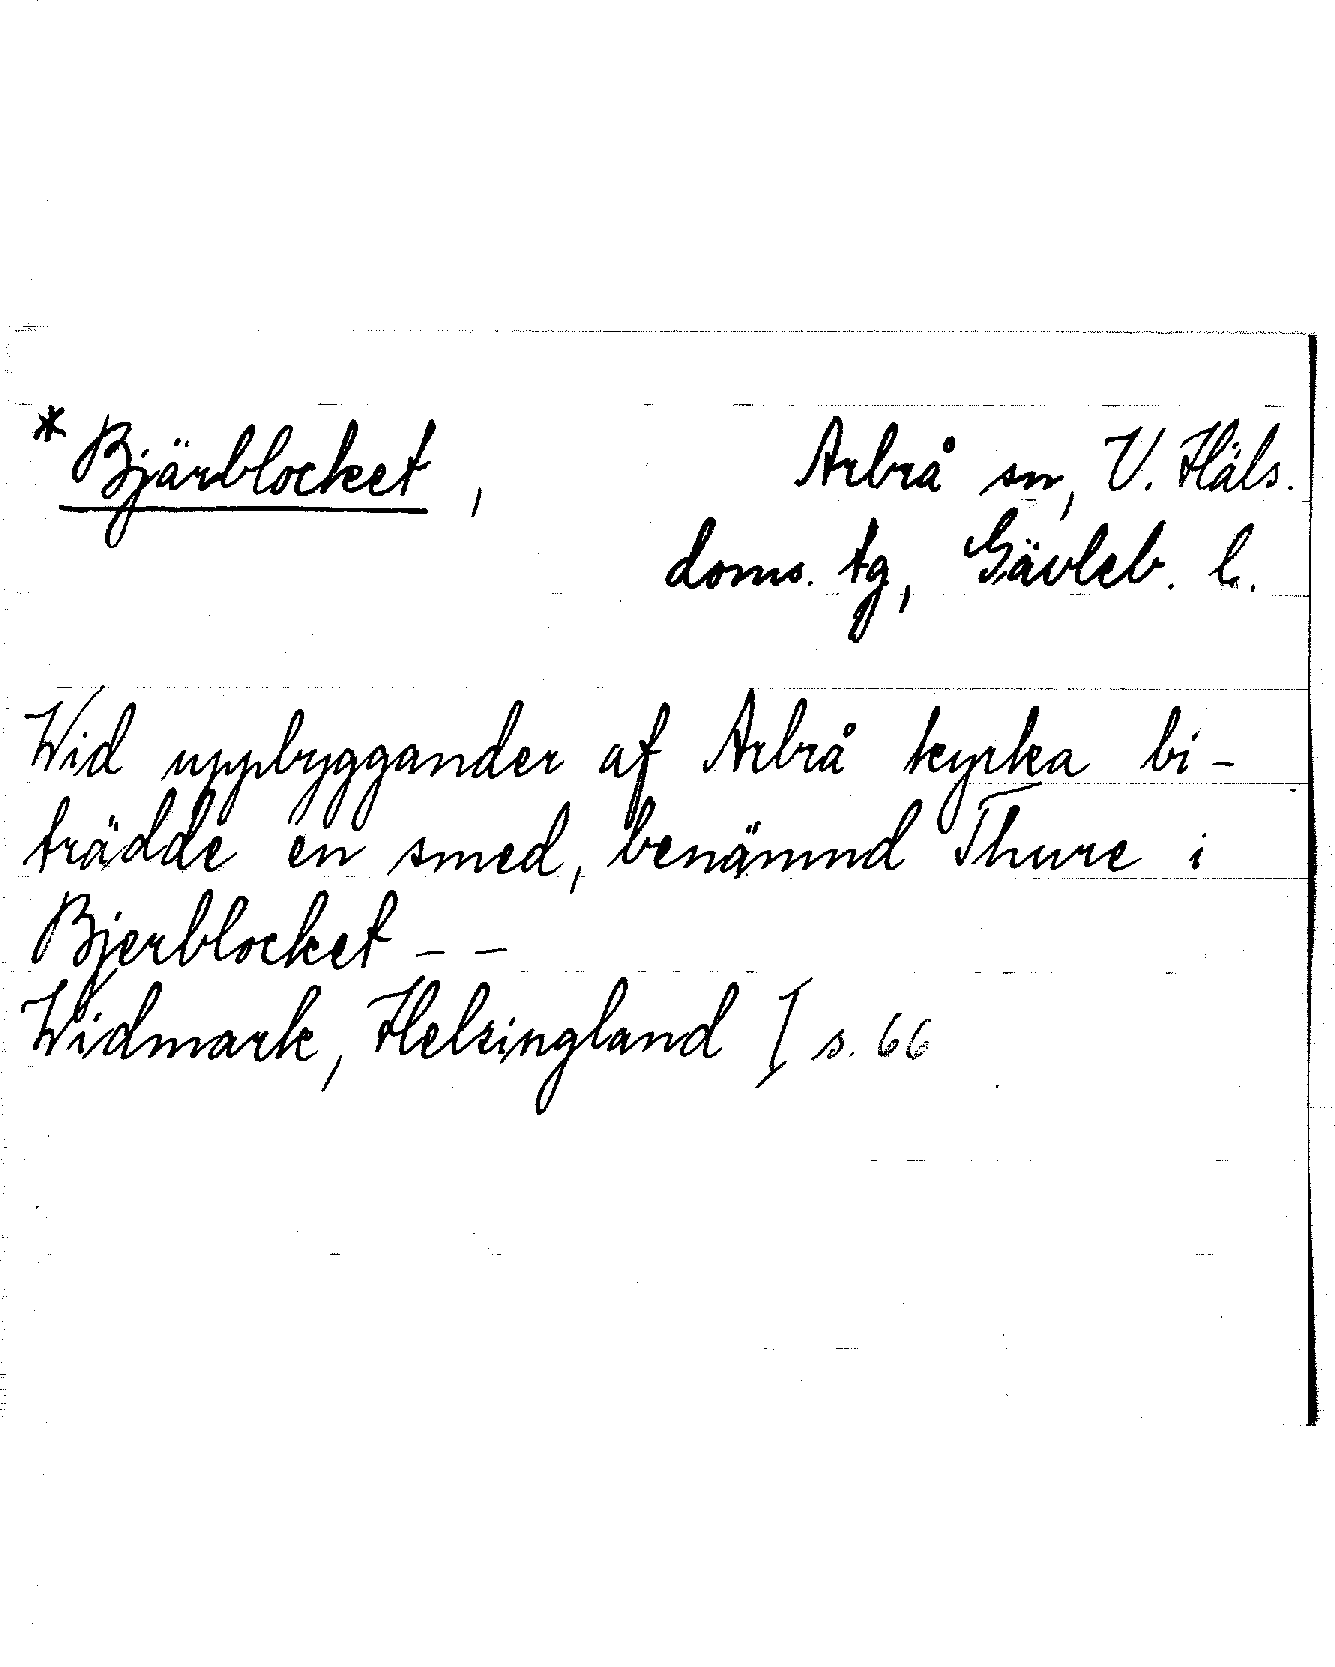 * Bjärblocket, Arbrå sn, V. Häls.
doms. tg, Gävleb. l.
Wid uppbyggander af Arbrå kyrka bi-
trädde en smed, benämnd Thure i
Bjerblocket - -
Widmark, Helsingland I s. 66